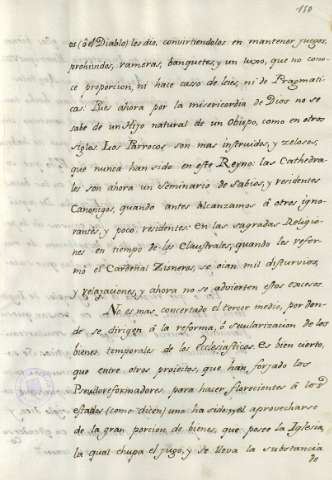 150
os (ô el Diablo) les dio, convirtiendolos en mantener juegos,
prohividos, rameras, banquetes, y un luxo, que no cono-
ce proporcion, ni hace casso de leies, ni de Pragmati-
cas. Pues ahora por la misericordia de Dios no se
sabe de un Hijo natural de un Obispo, como en otros
siglos. Los Parrocos son mas instruidos, y zelosos,
que nunca han sido en este Reyno: las Cathedra-
les son ahora un seminario de sabios, y residentes
Canonigos, quando antes alcanzamos â otros igno-
rantes, y poco residentes: en las sagradas Religio-
nes en tiempo de los Claustrales, quando los refor-
mó el Cardenal Zisneros, se oian mil disturvios,
y relajaciones, y ahora no se advierten estos excesos
No es mas concertado el tercer medio, por don-
de se dirigen â la reforma, ô secularizacion de los
bienes temporales de los Ecclesiasticos. Es bien cierto,
que entre otros proiectos, que han forjado los
Pseudoreformadores para hacer florecientes â los
estados (como dicen) uno ha sido, el aprovecharse
de la gran porcion de bienes, que posee la Iglesia,
la qual chupa el jugo, y se lleva la substancia
de